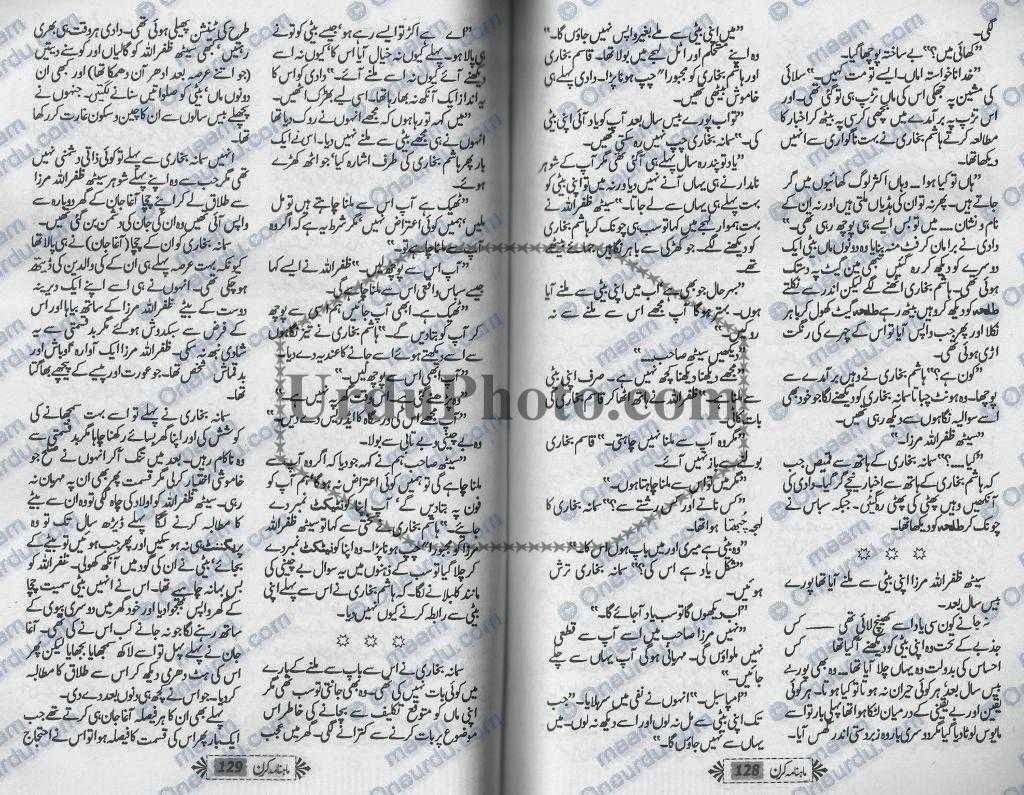 گی۔
"کھائیں میں؟" بے ساختہ پوچھا گیا۔
"خدانخواستہ اماں۔ ایسے تو مت کہیں۔" سلائی
کی مشین پہ جھکی اس کی ماں تڑپ ہی تو گئی تھی۔ اور
مطالعہ کرتے ہاشم بخاری نے بہت ناگواری سے انہیں
دیکھا تھا۔
"ہاں تو کیا ہوا... وہاں اکثر لوگ کھائیوں میں گر
جاتے ہیں۔ پھر نہ تو ان کی ہڈیاں ملتی ہیں اور نہ ان کے
نام و نشان.... میں تو بس ایسے ہی پوچھ رہی تھی۔"
دادی نے برا مان کر فٹ منہ بنایا وہ دونوں ماں بیٹی ایک
دوسرے کو دیکھ کر رہ گئیں۔ تبھی مین گیٹ پہ دستک
ہوئی تھی۔ ہاشم بخاری اٹھنے لگے لیکن اندر سے نکلتے
طلحہ کو دیکھ کر وہیں بیٹھ رہے طلحہ گیٹ کھول کر باہر
نکلا اور پھر جب واپس آیا تو اس کے چہرے کی رنگت
اڑی ہوئی تھی۔
"کون ہے؟" ہاشم بخاری نے وہیں برآمدے سے
پوچھا۔ وہ ہونٹ چباتا سمانہ بخاری کو دیکھنے لگا جو خود بھی
اسے سوالیہ نگاہوں سے دیکھ رہی تھیں۔
"سیٹھ ظفر اللہ مرزا۔"
"کیا....؟" سمانہ بخاری کے ہاتھ سے قمیص جب
کہ ہاشم بخاری کے ہاتھ سے اخبار نیچے گر گیا۔ دادی کی
آنکھیں وہیں پھٹی کی پھٹی رہ گئی۔ جبکہ سپاس نے
چونک کر طلحہ کو دیکھا تھا۔
سیٹھ ظفر اللہ مرزا اپنی بیٹی سے ملنے آیا تھا پورے
بیس سال بعد۔
جانے کون سی یاد اسے کھینچ لائی تھی ـــــ کس
جذبے کے تحت وہ اپنی بیٹی کو دیکھنے آ گیا تھا کس
احساس کی بدولت وہ یہاں چلا آیا تھا۔ وہ بھی پورے
بیس سال بعد۔ ہر کوئی حیران نہ ہوتا تو کیا ہوتا۔ ہر کوئی
یقین اور بے یقینی کے درمیان لٹکا ہوا تھا پہلی بار تو اسے
مایوس لوٹا دیا گیا مگر دوسری بار وہ زبردستی اندر گھس آیا۔
ماہنامہ کرن 128
"میں اپنی بیٹی سے ملے بغیر واپس نہیں جاؤں گا۔"
وہ اپنے مستحکم اور اٹل لہجے میں بولا تھا۔ قاسم بخاری
اور ہاشم بخاری کو مجبورا" چپ ہونا پڑا۔ دادی پہلے ہی
خاموش بیٹھی تھیں۔
"تو اب پورے بیس سال بعد آپ کو یاد آئی اپنی بیٹی
کی۔" سمانہ بخاری چپ نہیں رہ سکتی تھیں۔
"یاد تو چند رہ سال پہلے ہی آ گئی تھی مگر آپ کے شوہر
نامدار نے ہی یہاں آنے نہیں دیا ورنہ میں تو اپنی بیٹی کو
بہت پہلے ہی یہاں سے لے جاتا۔" سیٹھ ظفر اللہ نے
بہت ہموار لہجے میں کہا تو سب ہی چونک کر ہاشم بخاری
کو دیکھنے لگے۔ جو کھڑکی سے باہر نگاہیں جمائے بیٹھے
تھے
"بہرحال جو بھی ہے اب میں اپنی بیٹی سے ملنے آیا
ہوں۔ بہتر ہو گا آپ مجھے اس سے ملنے سے نہ
روکیں۔"
"دیکھیں سیٹھ صاحب..."
"مجھے دیکھنا ویکھنا کچھ نہیں ہے۔ صرف اپنی بیٹی
سے ملنا ہے۔" ظفر اللہ نے ہاتھ اٹھا کر قاسم بخاری کی
بات کاٹی۔
"مگر وہ آپ سے ملنا نہیں چاہتی۔" قاسم بخاری
بولنے سے باز نہیں آئے۔
"مگر میں تو اس سے ملنا چاہتا ہوں۔"
"کس ناتے اور کس رشتے سے؟" سمانہ بخاری کا
لہجہ چبھتا ہوا تھا۔
"وہ بیٹی ہے میری اور میں باپ ہوں اس کا۔"
"شکل یاد ہے اس کی؟" سمانہ بخاری ترش
ہوئیں۔
"اب دیکھوں گا تو سب یاد آ جائے گا۔"
"نہیں مرزا صاحب میں اسے آپ سے قطعی
نہیں ملواؤں گی۔ مہربانی ہو گی آپ یہاں سے چلے
جائیں۔"
"امپاسبل۔" انہوں نے نفی میں سر ہلایا۔ "جب
تک اپنی بیٹی سے مل نہ لوں اور اسے دیکھ نہ لوں۔ میں
یہاں سے نہیں جاؤں گا۔"
"اے ہے اکڑ تو ایسے رہے ہو، جیسے بیٹی کو تو نے
ہی پالا ہو۔ پہلے کیوں نہ خیال آیا اس کا کیوں نہ اسے
دیکھنے آئے کیوں نہ اسے ملنے آئے۔" دادی کو اس کا
یہ انداز ایک آنکھ نہ بھا رہا تھا۔ اسی لیے بھڑک اٹھیں۔
"میں کہہ تو رہا ہوں کہ مجھے انہوں نے روک دیا تھا
انہوں نے ہی مجھے بیٹی سے ملنے نہیں دیا۔ اس نے ایک
بار پھر ہاشم بخاری کی طرف اشارہ کیا جو اٹھ کھڑے
ہوئے۔
"ٹھیک ہے آپ اس سے ملنا چاہتے ہیں تو مل
لیں، ہمیں کوئی اعتراض نہیں مگر شرط یہ ہے کہ اگر وہ
آپ سے ملنا چاہے تو۔"
"آپ اس سے پوچھ لیں۔" ظفر اللہ نے ایسے کہا
جیسے سپاس واقعی اس سے ملنا چاہے گی۔
"ٹھیک ہے۔ ابھی آپ جائیں، ہم اس سے پوچھ
کر آپ کو بتا دیں گے۔" ہاشم بخاری نے تیز نگاہوں
سے اسے دیکھتے ہوئے اسے جانے کا عندیہ دے دیا۔
"آپ ابھی اس سے پوچھ لیں۔"
"آپ مجھے اس کی درسگاہ کا ایڈریس دے دیں۔"
وہ بے چینی و بے تابی سے بولا۔
"سیٹھ صاحب ہم نے کہہ جو دیا کہ اگر وہ آپ سے
ملنا چاہے گی تو ہمیں کوئی اعتراض نہ ہو گا ہم آپ کو
فون پہ بتا دیں گے آپ اپنا کونٹیکٹ نمبر دے
جائیے۔" ہاشم بخاری نے سختی سے کہا تو سیٹھ ظفر اللہ
مرزا کو مجبورا" چپ ہونا پڑا۔ وہ اپنا کونٹیکٹ نمبر دے
کر چلا گیا تو سب کے ذہنوں میں یہ سوال بے چینی کی
مانند کلبلانے لگا۔ کہ ہاشم بخاری نے اس سے پہلے اپنی
بیٹی سے رابطہ کرنے کیوں نہیں دیا۔
سمانہ بخاری نے اس سے باپ سے ملنے کے بارے
میں کوئی بات نہیں کی تھی۔ وہ بھی جانتی تو سب تھی مگر
اپنی ماں کو متوقع تکلیف سے بچانے کی خاطر اس
موضوع پر بات کرنے سے کترانے لگی۔ گھر میں عجیب
طرح کی ٹینشن پھیلی ہوئی تھی۔ دادی ہر وقت ہی بھری
رہتیں، کبھی سیٹھ ظفر اللہ کو گالیاں اور کوسنے دیتیں
(جو اتنے عرصہ بعد ادھر آن دھمکا تھا) اور کبھی ان
دونوں ماں، بیٹی کو صلواتیں سنانے لگتیں۔ جنہوں نے
پچھلے بیس سالوں سے ان کا چین و سکون غارت کر رکھا
تھا۔
انہیں سمانہ بخاری سے پہلے تو کوئی ذاتی دشمنی نہیں
تھی مگر جب سے وہ اپنے پہلے شوہر سیٹھ ظفر اللہ مرزا
سے طلاق لے کر اپنے چچا آغا جان کے گھر دوبارہ سے
واپس آئی تھیں وہ ان کی جان کی دشمن بن گئی تھیں۔
سمانہ بخاری کو ان کے چچا (آغا جان) نے ہی پالا تھا
کیونکہ بہت عرصہ پہلے ہی ان کے والدین کی ڈیتھ
ہو چکی تھی۔ انہوں نے ہی اسے اپنے ایک دیرینہ
دوست کے بیٹے ظفر اللہ مرزا کے ساتھ بیاہا اور اس
کے فرض سے سبکدوش ہو گئے مگر بدقسمتی سے یہ
شادی نبھ نہ سکی۔ ظفر اللہ مرزا ایک آوارہ، اوباش اور
بدقماش شخص تھا۔ جو عورت اور پیسے کے پیچھے بھاگتا
تھا۔
سمانہ بخاری نے پہلے تو اسے بہت سمجھانے کی
کوشش کی اور اپنا گھر بسائے رکھنا چاہا مگر بدقسمتی سے
وہ ناکام رہیں۔ بعد میں تنگ آ کر انہوں نے مصلح جو
خاموشی اختیار کر لی مگر قسمت پھر بھی ان پہ مہربان نہ
رہی۔ سیٹھ ظفر اللہ کو اولاد کی چاہ تھی تو وہ ان سے بیٹے
کا مطالبہ کرنے لگا پہلے ڈیڑھ سال تک تو وہ
پریگننٹ ہی نہ ہو سکیں اور پھر جب ہوئیں تو بیٹے کے
بجائے، بیٹی نے ان کی گود میں آنکھ کھولی۔ ظفر اللہ کو
بس بہانہ چاہیے تھا۔ اس نے انہیں بیٹی سمیت چچا
کے گھر واپس بھجوا دیا اور خود گھر میں دوسری بیوی کے
ساتھ رہنے لگا جو نہ جانے کب اس نے کی تھی۔ آغا
جان نے پہلے پہل تو اسے لاکھ سمجھایا بجھایا لیکن پھر
اس کی ہٹ دھرمی دیکھ کر اس سے طلاق کا مطالبہ
کر دیا۔ جو اس نے کچھ ہی دنوں بعد دے دی۔
پہلے بھی ان کا ہر فیصلہ آغا جان ہی کرتے تھے جب
ایک بار پھر اس کی قسمت کا فیصلہ ہوا تو اس نے احتجاج
ماہنامہ کرن 129
UrduPhoto.com